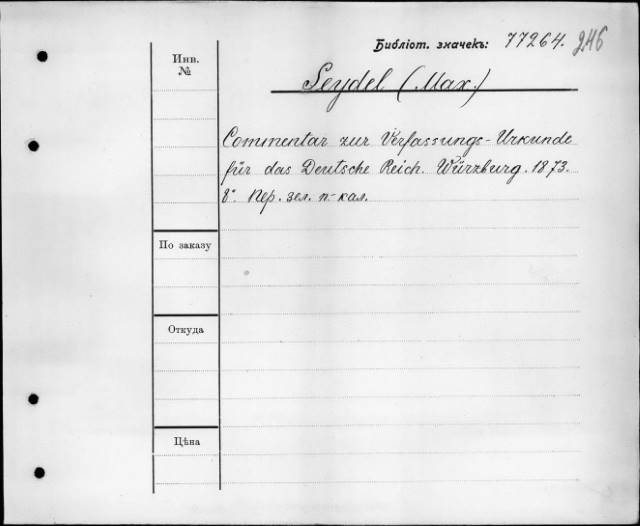 Библіот. значекъ: 77264. 246
Инв.
№
Seydel (Max.)
Commentar zur Verfassungs-Urkunde
für das Deutsche Reich. Würzburg. 1873.
8°. Пер. зел. п-кал.
По заказу
Откуда
Цѣна